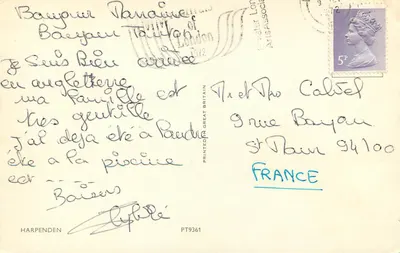 Bonjour Parraine
Bonjour Tonton
je suis bien arrivée
en angleterre
ma famille est
très gentille
j'ai déjà été à Londre
été a la piscine
ect ----
Baisers
Sybille
HARPENDEN
PT9361
PRINTED IN GREAT BRITAIN
of
London
5P
Mr et Mme Calvel
9 rue Banyan
St Maur 94100
FRANCE